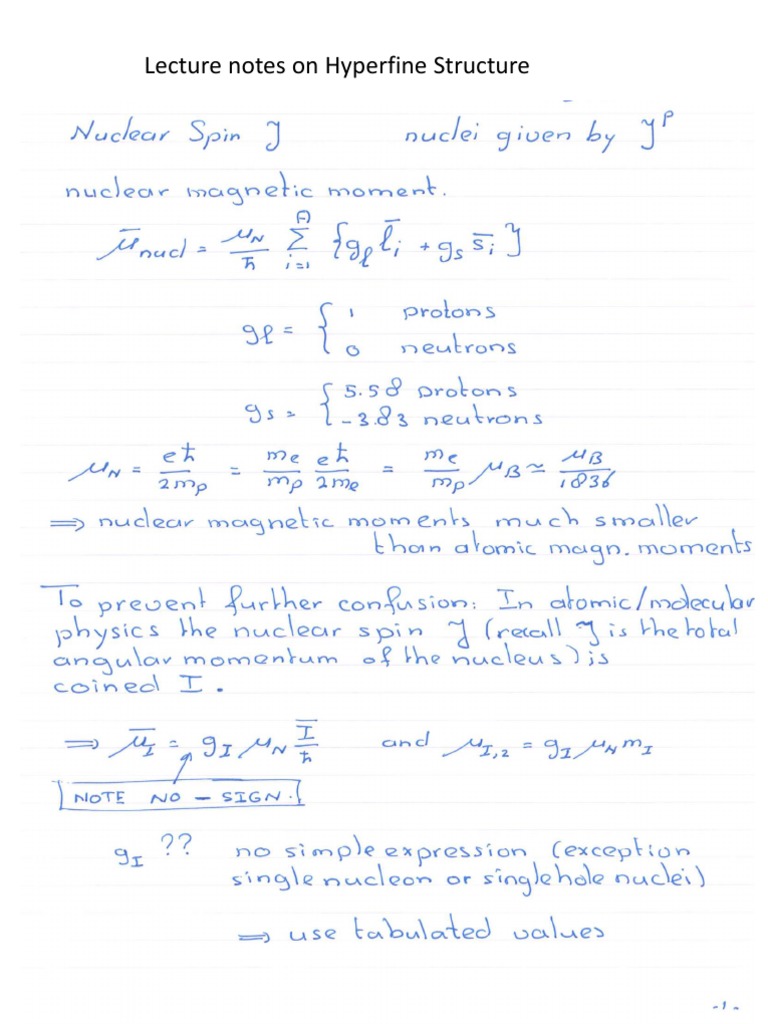 Lecture notes on Hyperfine Structure
Nuclear Spin J nuclei given by J^P
nuclear magnetic moment.
μ̄_nucl = μ_N/ħ Σ_{i=1}^{A} {g_ℓ l̄_i + g_s s̄_i}
g_ℓ = { 1 protons
0 neutrons
g_s = { 5.58 protons
-3.83 neutrons
μ_N = eħ/2m_p = m_e/m_p eħ/2m_e = m_e/m_p μ_B ≃ μ_B/1836
⇒ nuclear magnetic moments much smaller
than atomic magn. moments
To prevent further confusion: In atomic/molecular
physics the nuclear spin J (recall J is the total
angular momentum of the nucleus) is
coined I.
⇒ μ̄_I = g_I μ_N Ī/ħ and μ_I,z = g_I μ_N m_I
NOTE NO - SIGN.
g_I ?? no simple expression (exception
single nucleon or single hole nuclei)
⇒ use tabulated values
-1-